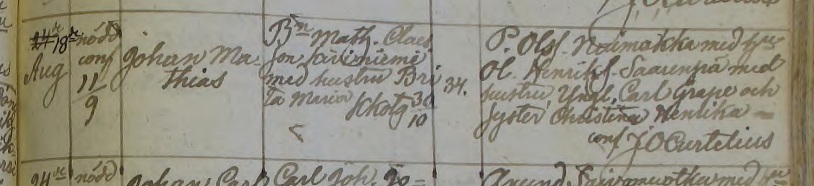 J O Curtelius
18de nödd
Aug conf
11
9
Johan Ma-
thias
Bn Math. Claes
son,
med hustru Bri
ta Maria Schotg 30
10
34.
P. Olsf. Naimakka med hru
Ol. Henriksf. Saarenpä med
hustru, Yngl. Carl Grape och
syster Christina Henrika =
conf J O Curtelius
24de nödd
Johan Carl
Carl Joh. Jo=
med hru